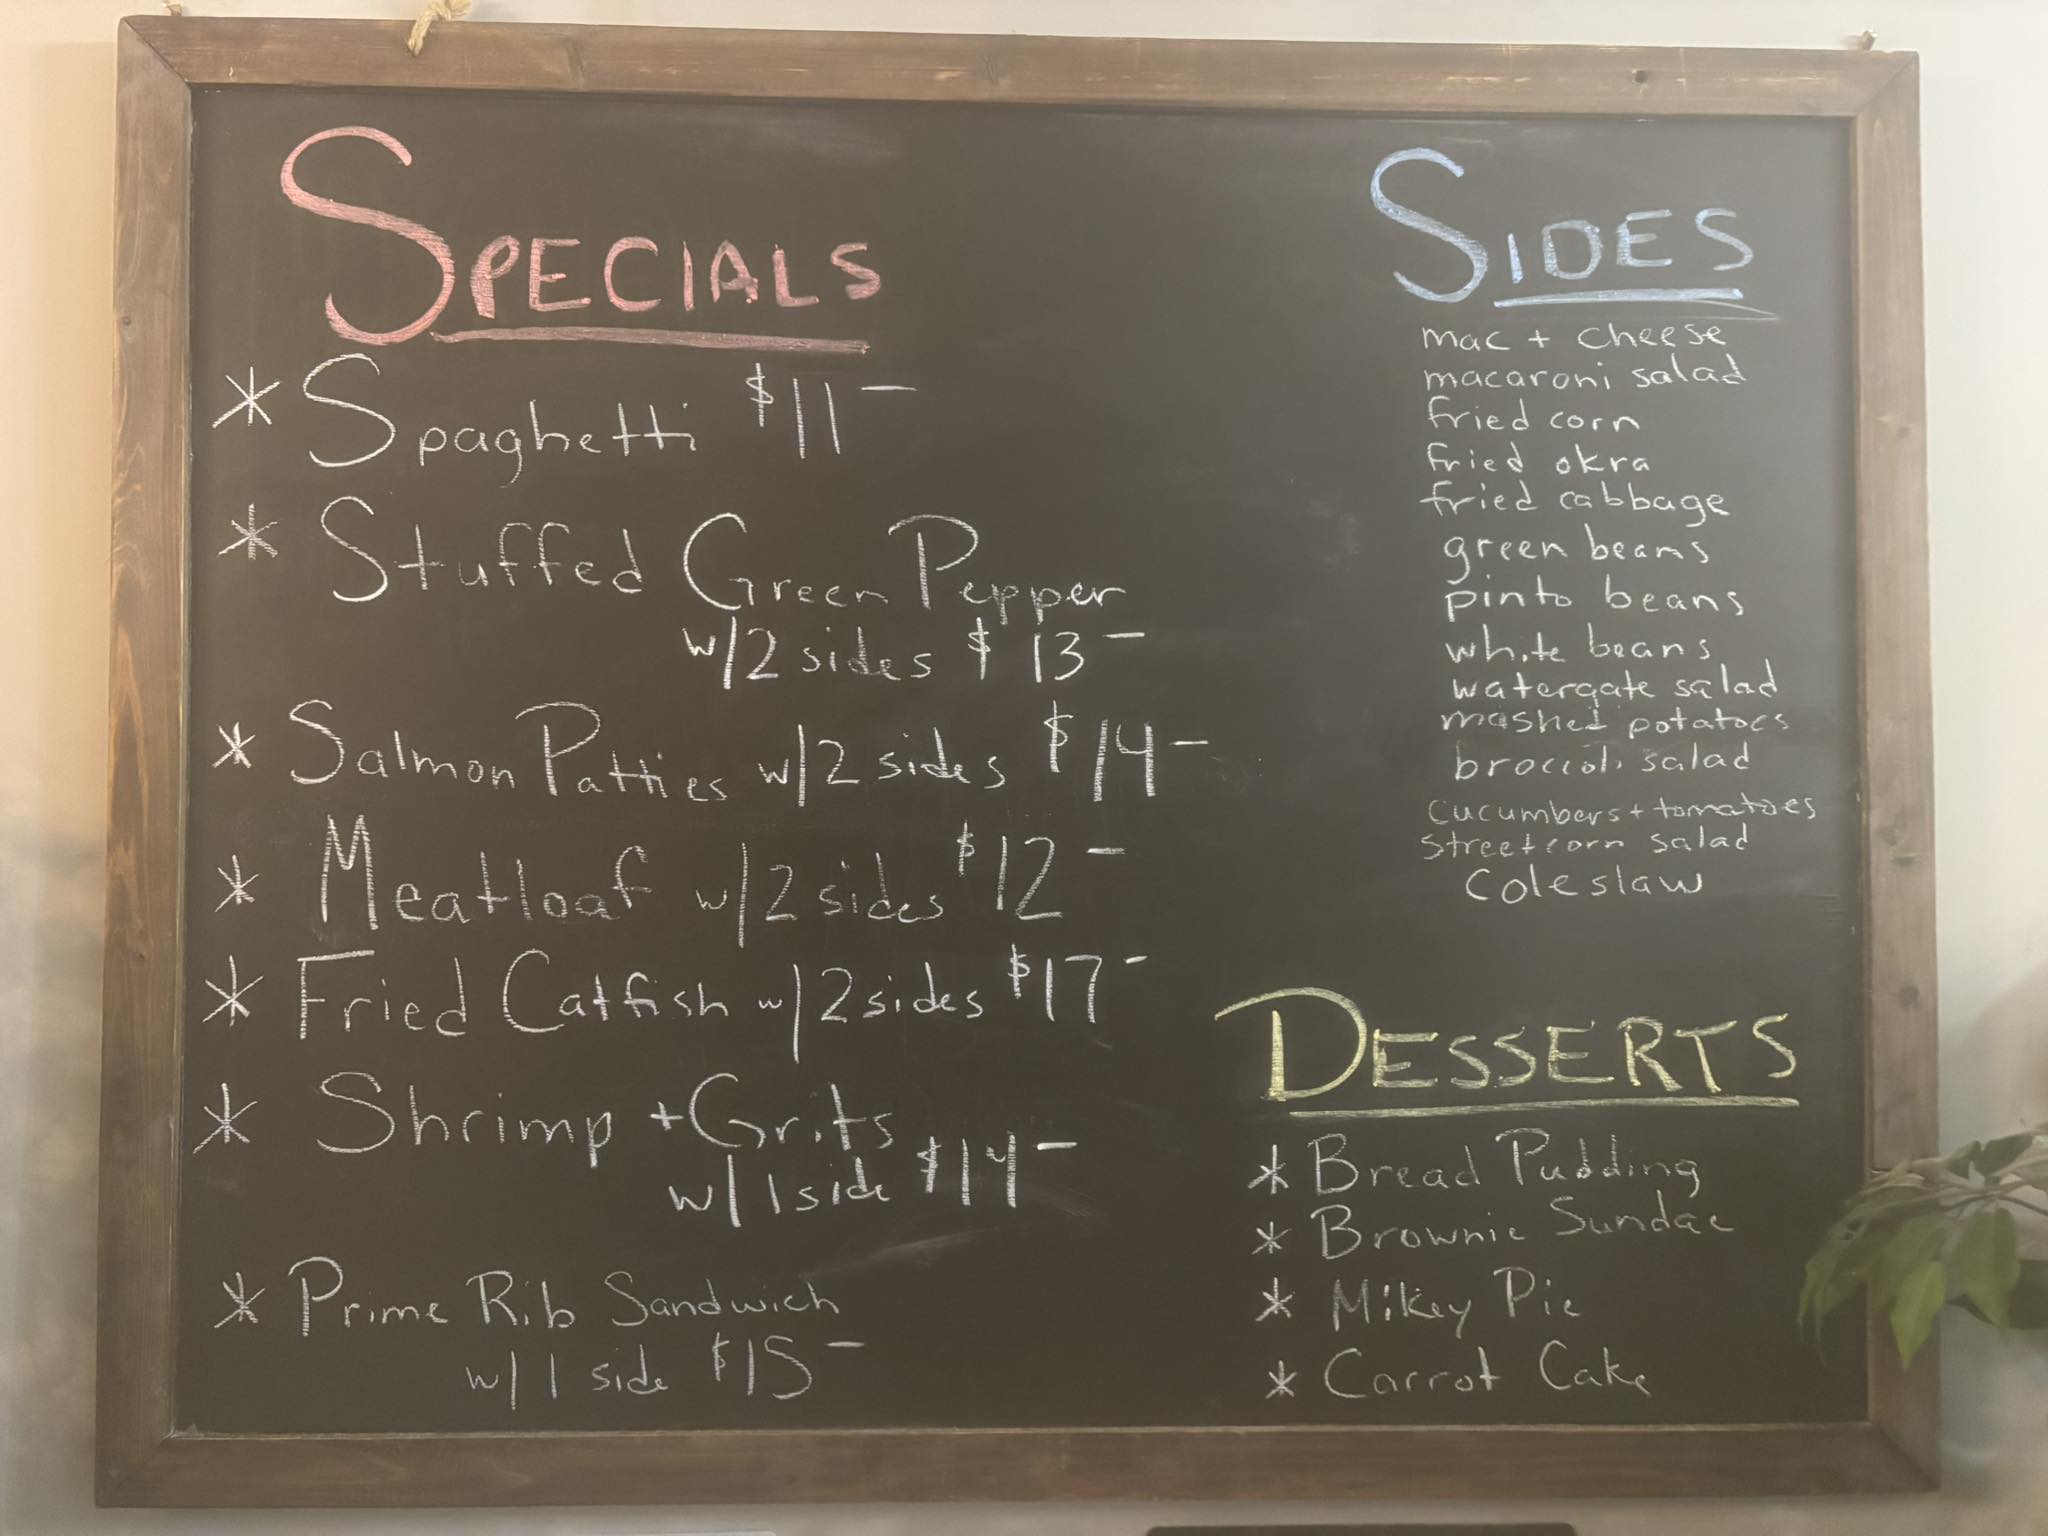 SPECIALS
* Spaghetti $11-
* Stuffed Green Pepper
w/2 sides $13-
* Salmon Patties w/2 sides $14-
* Meatloaf w/2 sides $12-
* Fried Catfish w/2 sides $17-
* Shrimp + Grits
w/1 side $14-
* Prime Rib Sandwich
w/1 side $15-
SIDES
mac + cheese
macaroni salad
fried corn
fried okra
fried cabbage
green beans
pinto beans
white beans
watergate salad
mashed potatoes
broccoli salad
cucumbers + tomatoes
street corn salad
Coleslaw
DESSERTS
* Bread Pudding
* Brownie Sundae
* Mikey Pie
* Carrot Cake